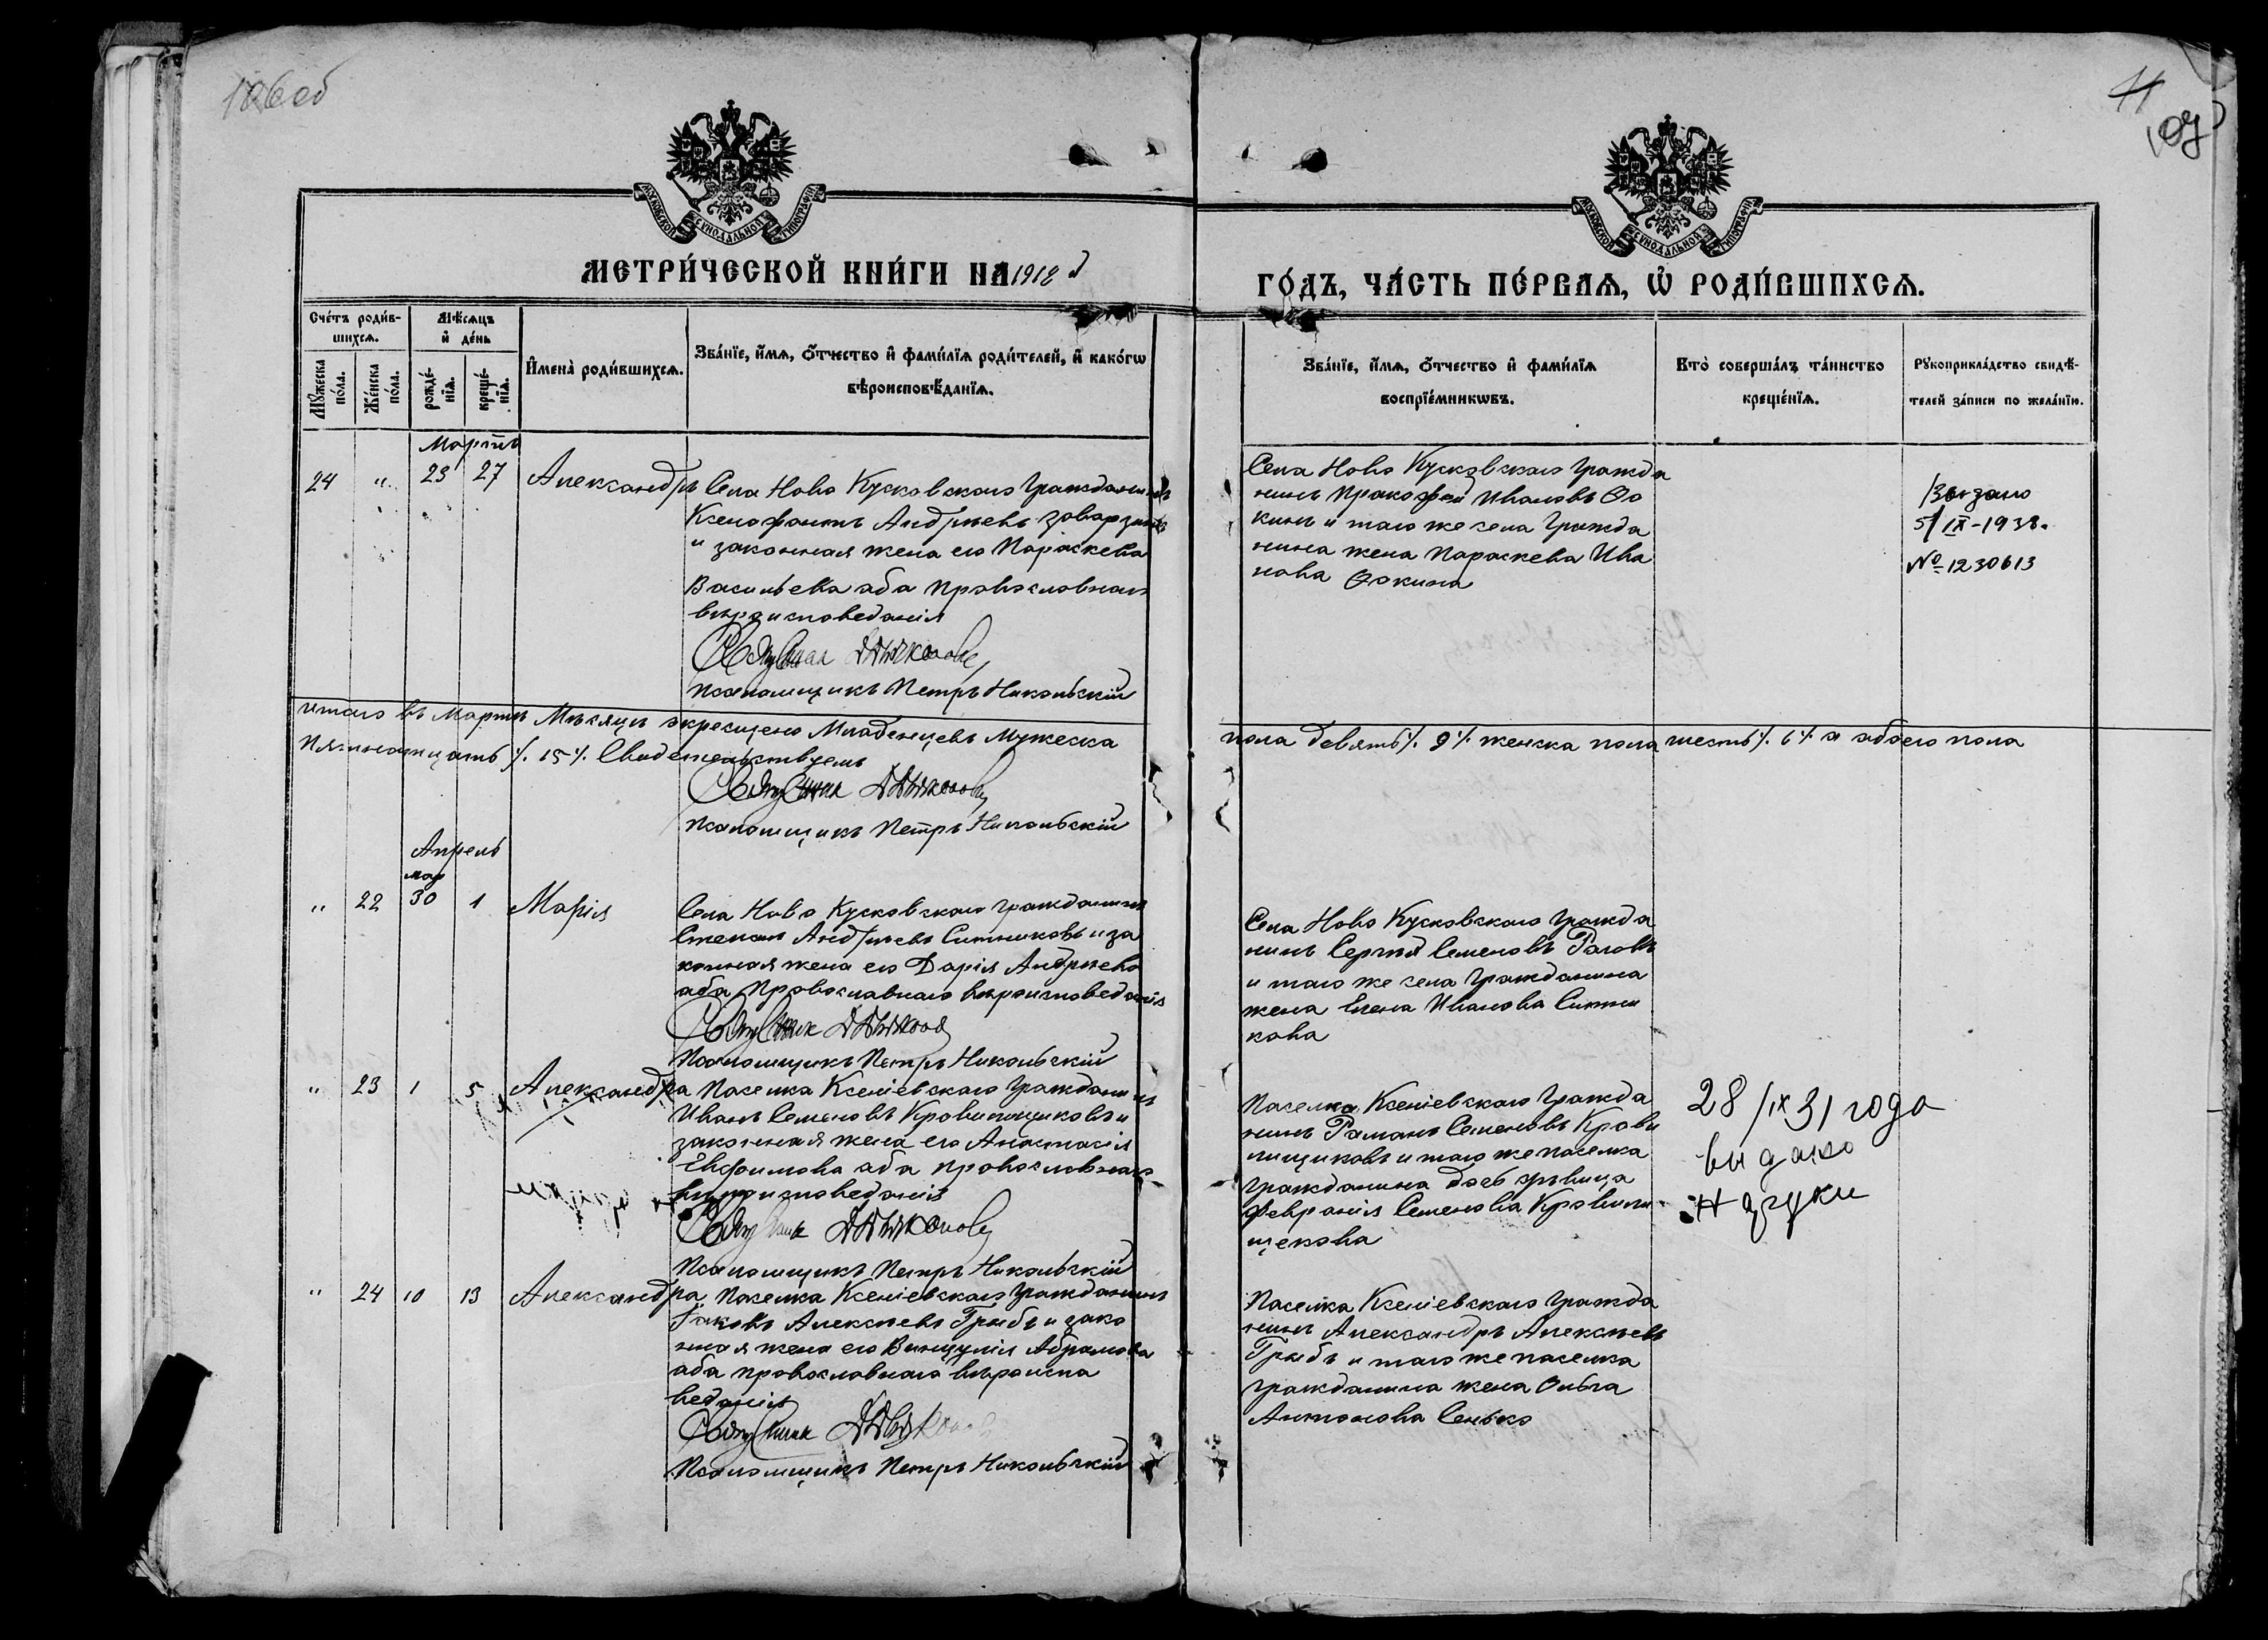 106 об
11
107
МОСКОВСКОЙ СѴНОДАЛЬНОЙ ТИПОГРАФІИ
МОСКОВСКОЙ СѴНОДАЛЬНОЙ ТИПОГРАФІИ
МЕТРИ́ЧЕСКОЙ КНИ́ГИ НА 1918 й
ГО́ДЪ, ЧА́СТЬ ПЕ́РВАѦ, Ѡ҆ РОДИ́ВШИХСѦ.
Сче́тъ роди́в-
шихсѧ.
Мꙋ́жеска
по́ла.
Же́нска
по́ла.
Мѣ́сѧцъ
и҆ де́нь
рожде́-
нїѧ.
креще́-
нїѧ.
И҆мена̀ роди́вшихсѧ.
Зва́нїе, и҆́мѧ, ѻ҆́тчество и҆ фами́лїѧ роди́телей, и҆ како́гѡ
вѣроисповѣ́данїѧ.
Зва́нїе, и҆́мѧ, ѻ҆́тчество и҆ фами́лїѧ
воспрїе́мникѡвъ.
Кто̀ соверша́лъ та́инство
креще́нїѧ.
Рꙋкоприкла́дство свидѣ́-
телей за́писи по жела́нїю.
Мартъ
24 " 23 27 Александръ
Села Ново Кусковского гражданинъ
Ксенофонтъ Андреевъ Заварзинъ
и законная жена его Параскева
Васильева оба православнаго
вѣроисповеданія
Псаломщикъ Петръ Никольскій
Села Ново Кусковского гражда
нинъ Прокофей Ивановъ Фо
кинъ и того же села гражда
нина жена Параскева Ива
нова Фокина
Выдано
5/IX-1938.
№ 1230613
итого въ Мартѣ Мѣсяцѣ окрещено Младенцевъ Мужеска пола девять /. 9 /. женска пола шесть /. 6 /. а обоего пола
Пятнатцать /. 15 /. Свидетельствуемъ
Псаломщикъ Петръ Никольскій
Апрель
мар
" 22 30 1 Марія
Села Ново Кусковского гражданинъ
Степанъ Андреевъ Ситниковъ и за
конная жена его Дарія Андреева
оба Православнаго вѣроисповеданія
Псаломщикъ Петръ Никольскій
Села Ново Кусковского гражда
нинъ Сергей Семеновъ Роговъ
и того же села гражданина
жена Елена Иванова Ситни
кова
" 23 1 5 Александра
Поселка Ксеніевского гражданинъ
Иванъ Семеновъ Кровилщиковъ и
законная жена его Анастасія
Евфимова оба православнаго
вѣроисповеданія
Псаломщикъ Петръ Никольскій
Поселка Ксеніевского гражда
нинъ Романъ Семеновъ Крови
лщиковъ и того же поселка
гражданина дочь дѣвица
Февранія Семенова Кровил
щекова
28/IX 31 года
выдано
" 24 10 13 Александра
Поселка Ксеніевского гражданинъ
Яковъ Алексеевъ Грыбъ и зако
нная жена его Абрамова
оба православнаго вѣроиспо
веданія
Псаломщикъ Петръ Никольскій
Поселка Ксеніевского гражда
нинъ Александръ Алексеевъ
Грыбъ и того же поселка
гражданина жена Ольга
Антонова Сенько